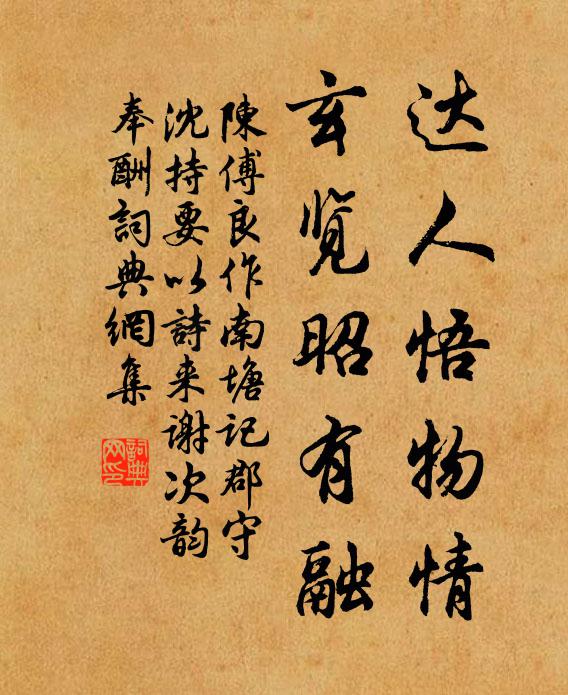 达人悟物情
玄览昭有融
陳傅良作南塘記郡守
沈持要以詩来谢次韵
奉酬詞典網集
詞典
网印